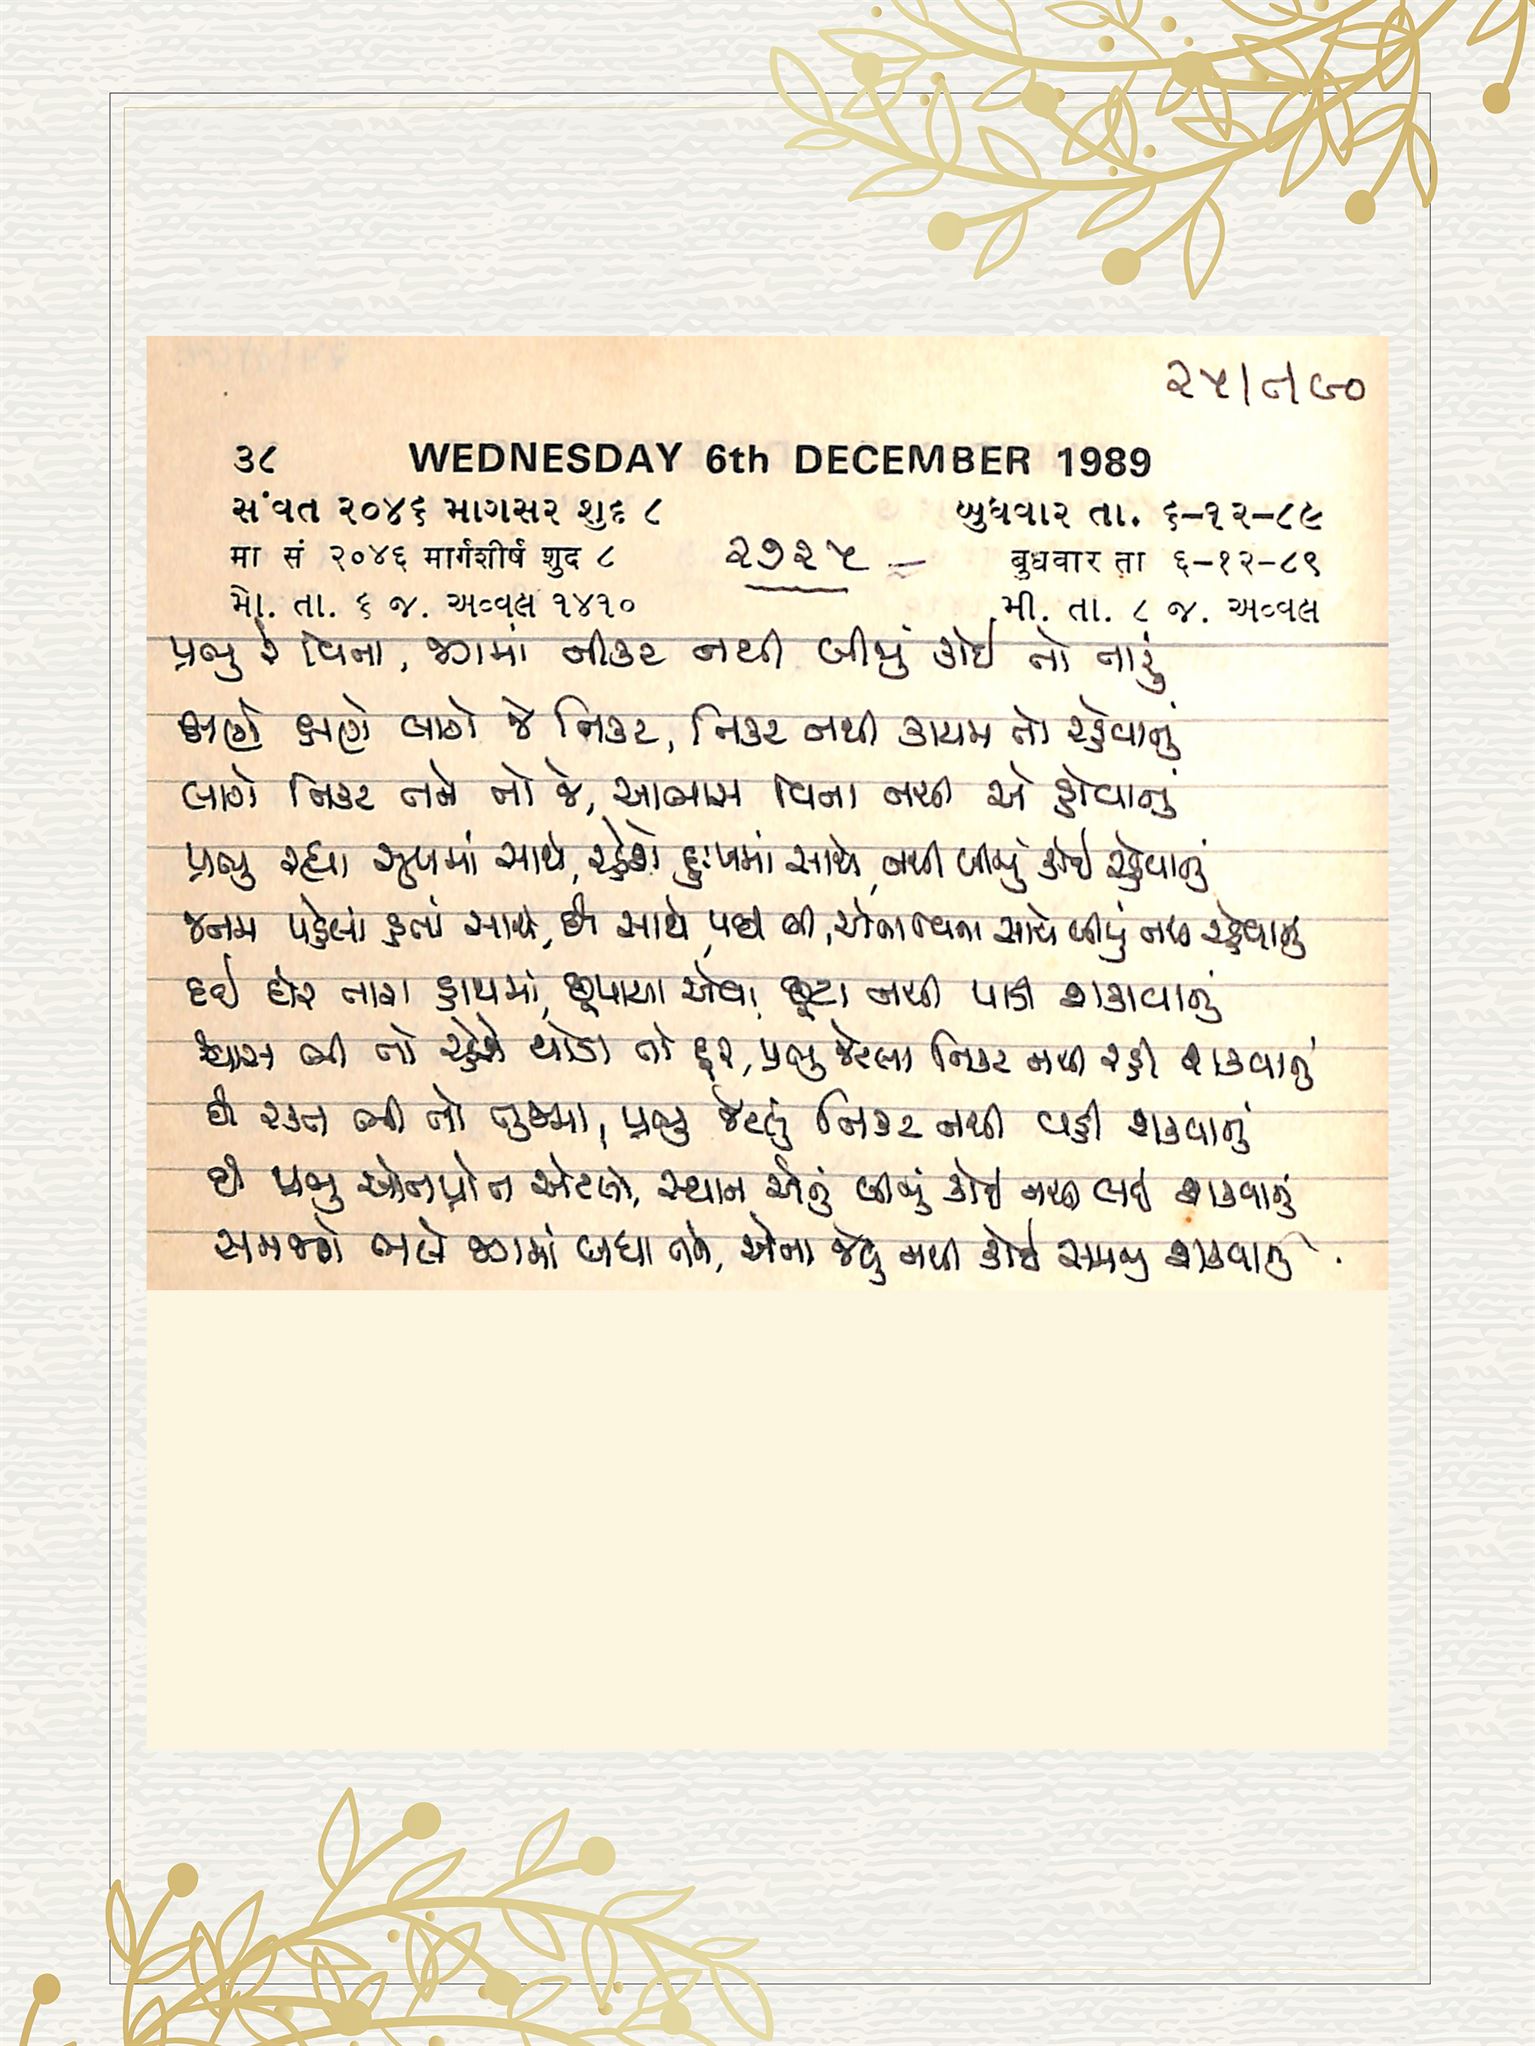 ૨૫/૮/૯૦
૩૮ WEDNESDAY 6th DECEMBER 1989
સંવત ૨૦૪૬ માગસર શુદ ૮ બુધવાર તા. ૬-૧૨-૮૯
मा सं २०४६ मार्गशीर्ष शुद ८ ૨૭૨૫ = बुधवार ता ६-१२-८९
મો. તા. ૬ જ. અવ્વલ ૧૪૧૦ મી. તા. ૮ જ. અવ્વલ
પ્રભુ રે વિના, જગમાં નીકટ નથી બીજું કોઈ તો તારું
ક્ષણે ક્ષણે લાગે જે નિકટ, નિકટ નથી કાયમ તો રહેવાનું
લાગે નિકટ તને તો જે, આભાસ વિના નથી એ હોવાનું
પ્રભુ રહ્યા સુખમાં સાથે, રહેશે દુઃખમાં સાથે, નથી બીજું કોઈ રહેવાનું
જનમ પહેલાં હતાં સાથે, છે સાથે, પછી બી, એના વિના સાથે બીજું નથી રહેવાનું
દઈ દોર તારા હાથમાં, છૂપાયા એવા, છૂટા નથી પાડી શકાવાનું
શ્વાસ બી તો રહેશે થોડા તો દૂર, પ્રભુ જેટલા નિકટ નથી રહી શકવાનું
છે રક્ત બી તો જુદા, પ્રભુ જેટલું નિકટ નથી વહી શકવાનું
છે પ્રભુ ઓતપ્રોત એટલો, સ્થાન એનું બીજું કોઈ નથી લઈ શકવાનું
સમજશે ભલે જગમાં બધા તને, એના જેવું નથી કોઈ સમજી શકવાનું.